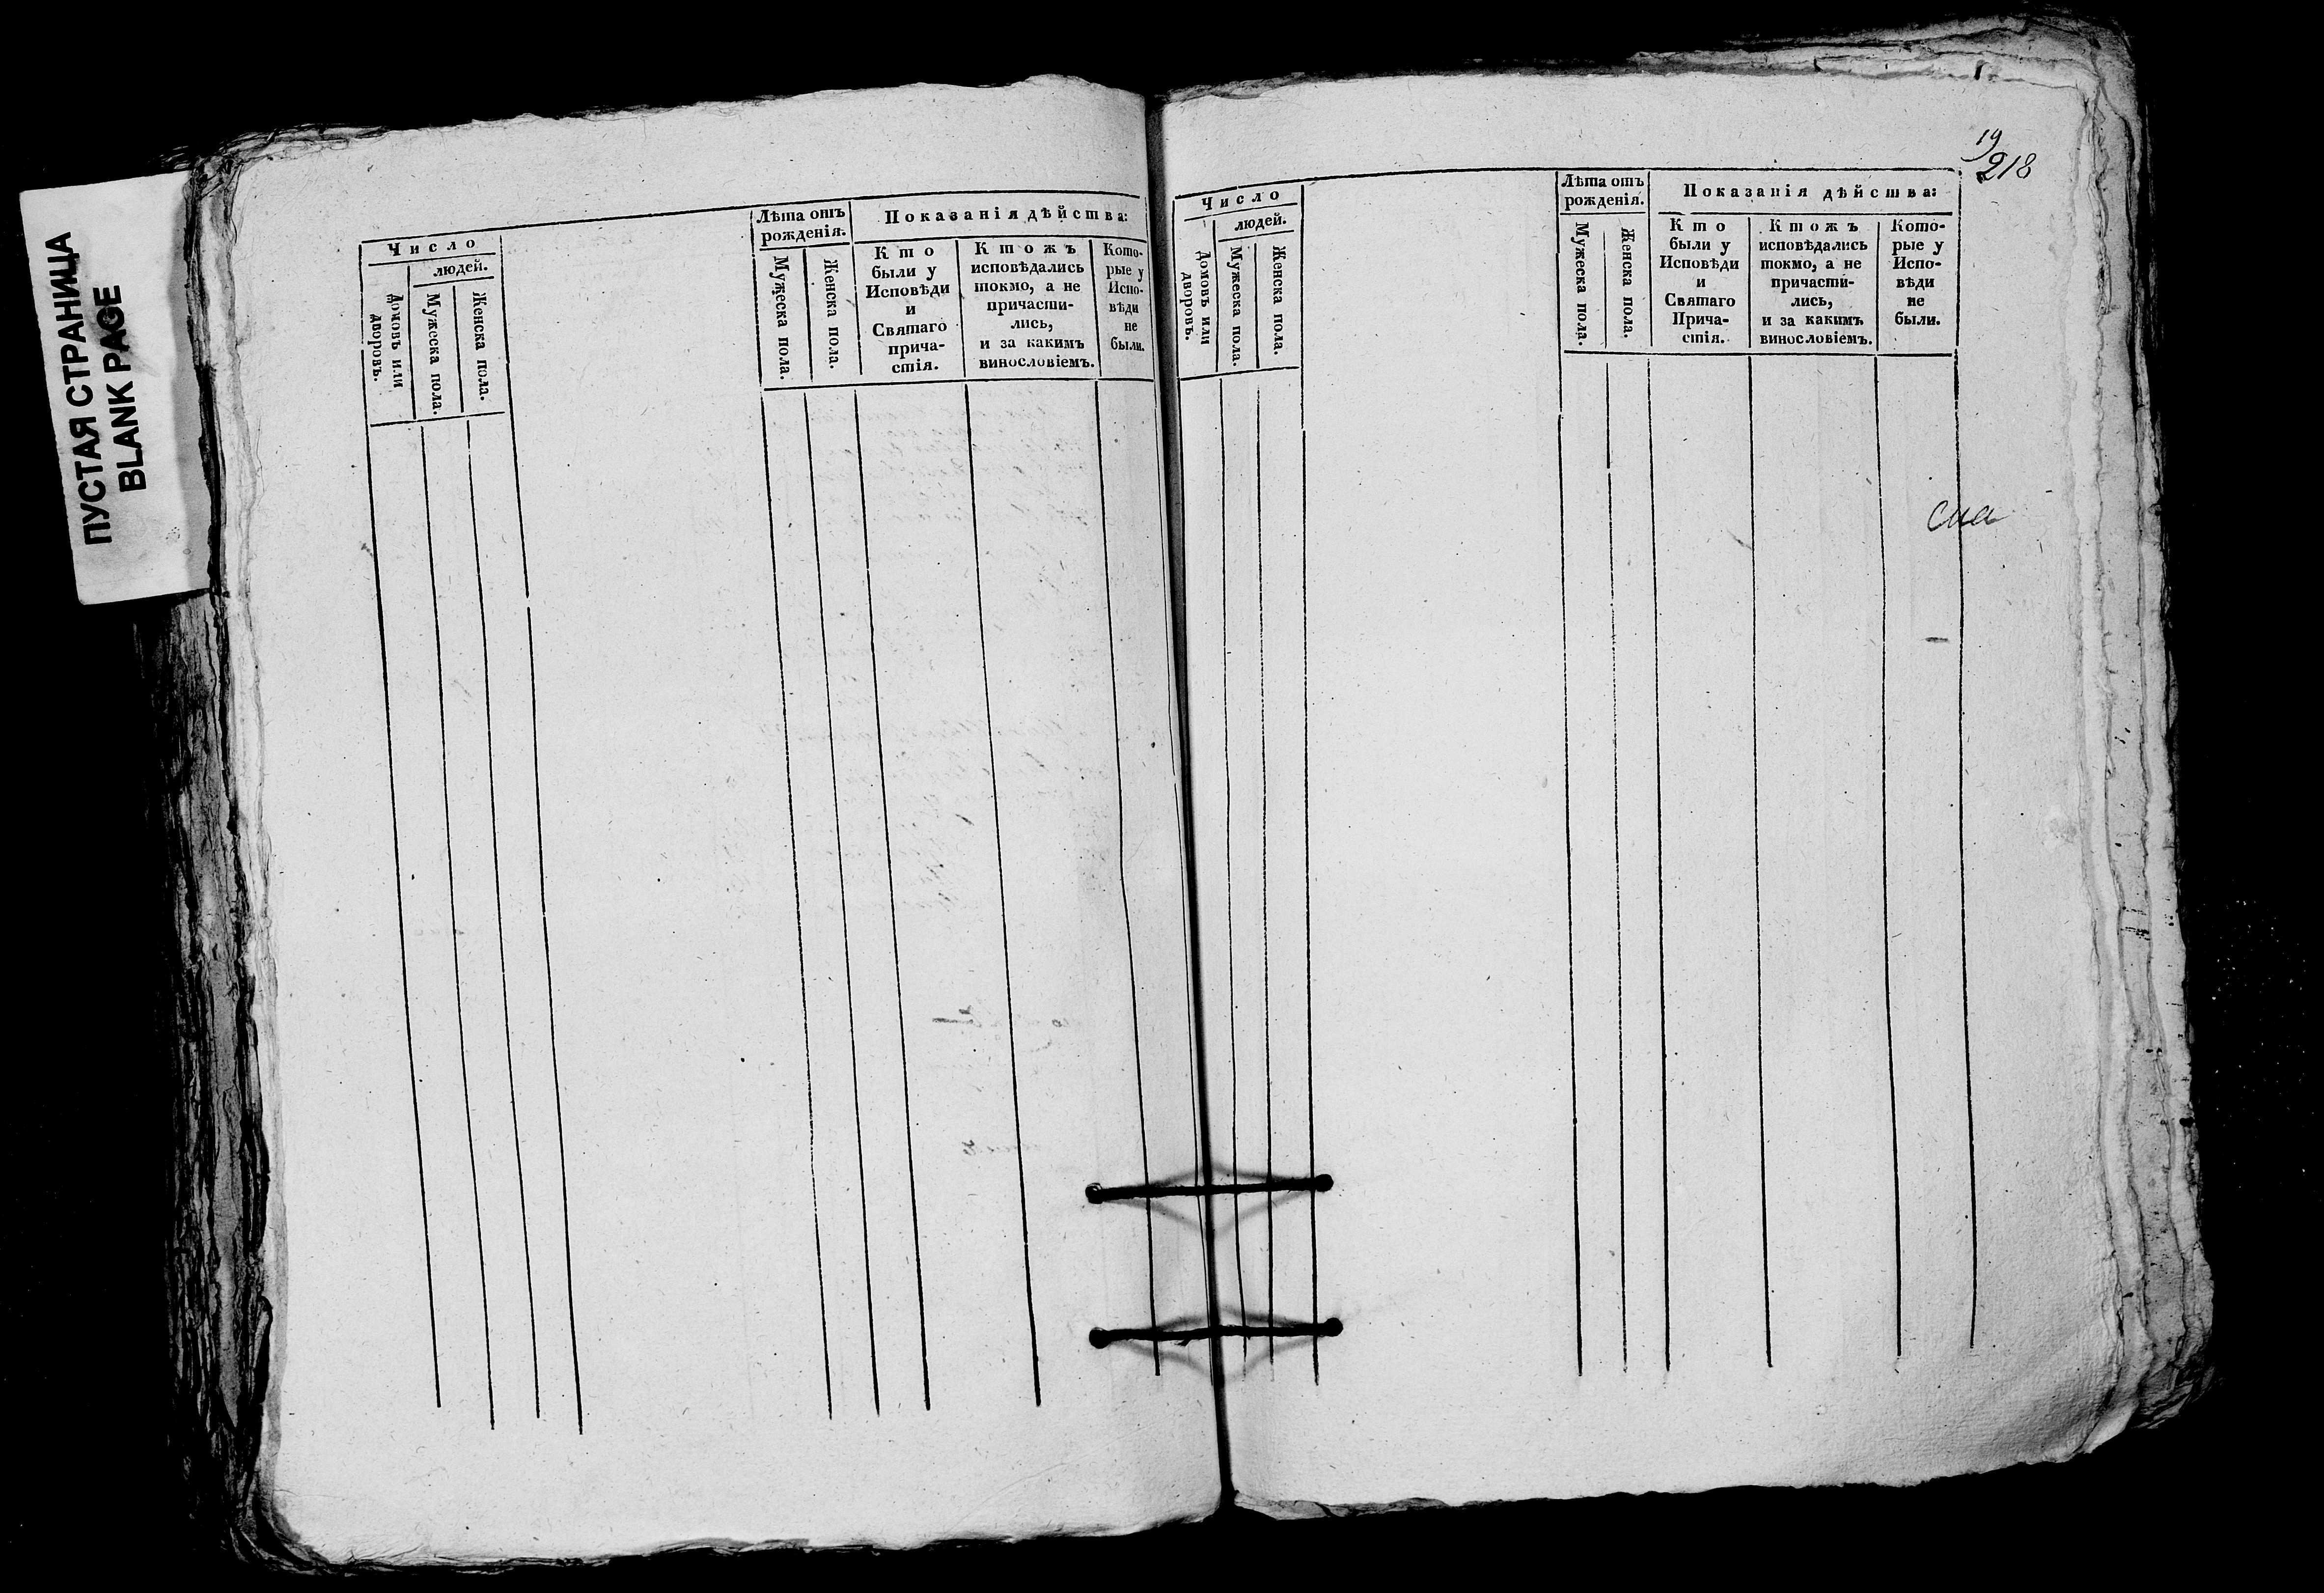 ПУСТАЯ СТРАНИЦА
BLANK PAGE
Число
людей.
Домовъ или дворовъ.
Мужеска пола.
Женска пола.
Лѣта отъ
рожденія.
Мужеска пола.
Женска пола.
Показанія дѣйства:
Кто
были у
Исповѣди
и
Святаго
прича-
стія.
Ктожъ
исповѣдались
токмо, а не
причасти-
лись,
и за какимъ
винословіемъ.
Кото-
рые у
Испо-
вѣди
не
были.
19
218
Число
людей.
Домовъ или дворовъ.
Мужеска пола.
Женска пола.
Лѣта отъ
рожденія.
Мужеска пола.
Женска пола.
Показанія дѣйства:
Кто
были у
Исповѣди
и
Святаго
Прича-
стія.
Ктожъ
исповѣдались
токмо, а не
причасти-
лись,
и за какимъ
винословіемъ.
Кото-
рые у
Испо-
вѣди
не
были.